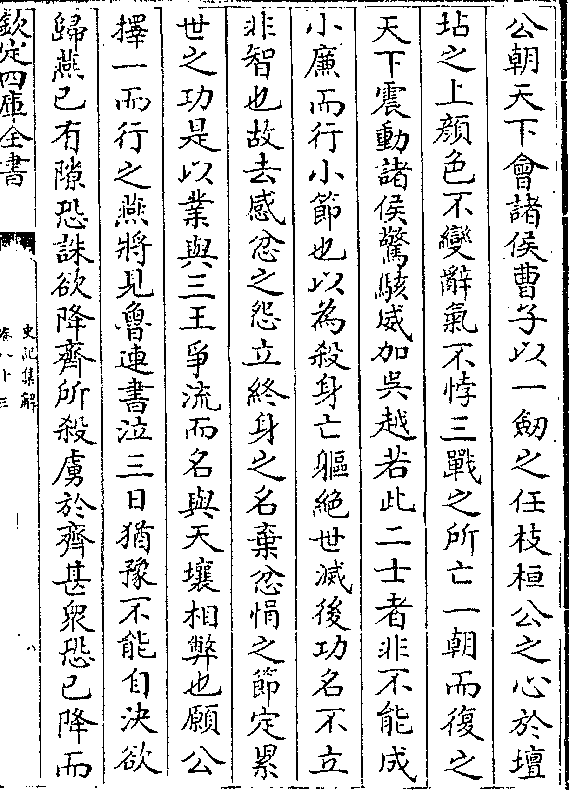 公朝天下會諸侯曹子以一劒之任枝桓公之心於壇
坫之上顔色不變辭氣不悖三戰之所亡一朝而復之
天下震動諸侯驚駭威加吳越若此二士者非不能成
小廉而行小節也以為殺身亡軀絕世滅後功名不立
非智也故去感忿之怨立終身之名棄忿悁之節定累
世之功是以業與三王爭流而名與天壤相弊也願公
擇一而行之燕將見魯連書泣三日猶豫不能自決欲
歸燕已有隙恐誅欲降齊所殺虜於齊甚衆恐已降而
欽定四庫全書
史記集解
卷八十三